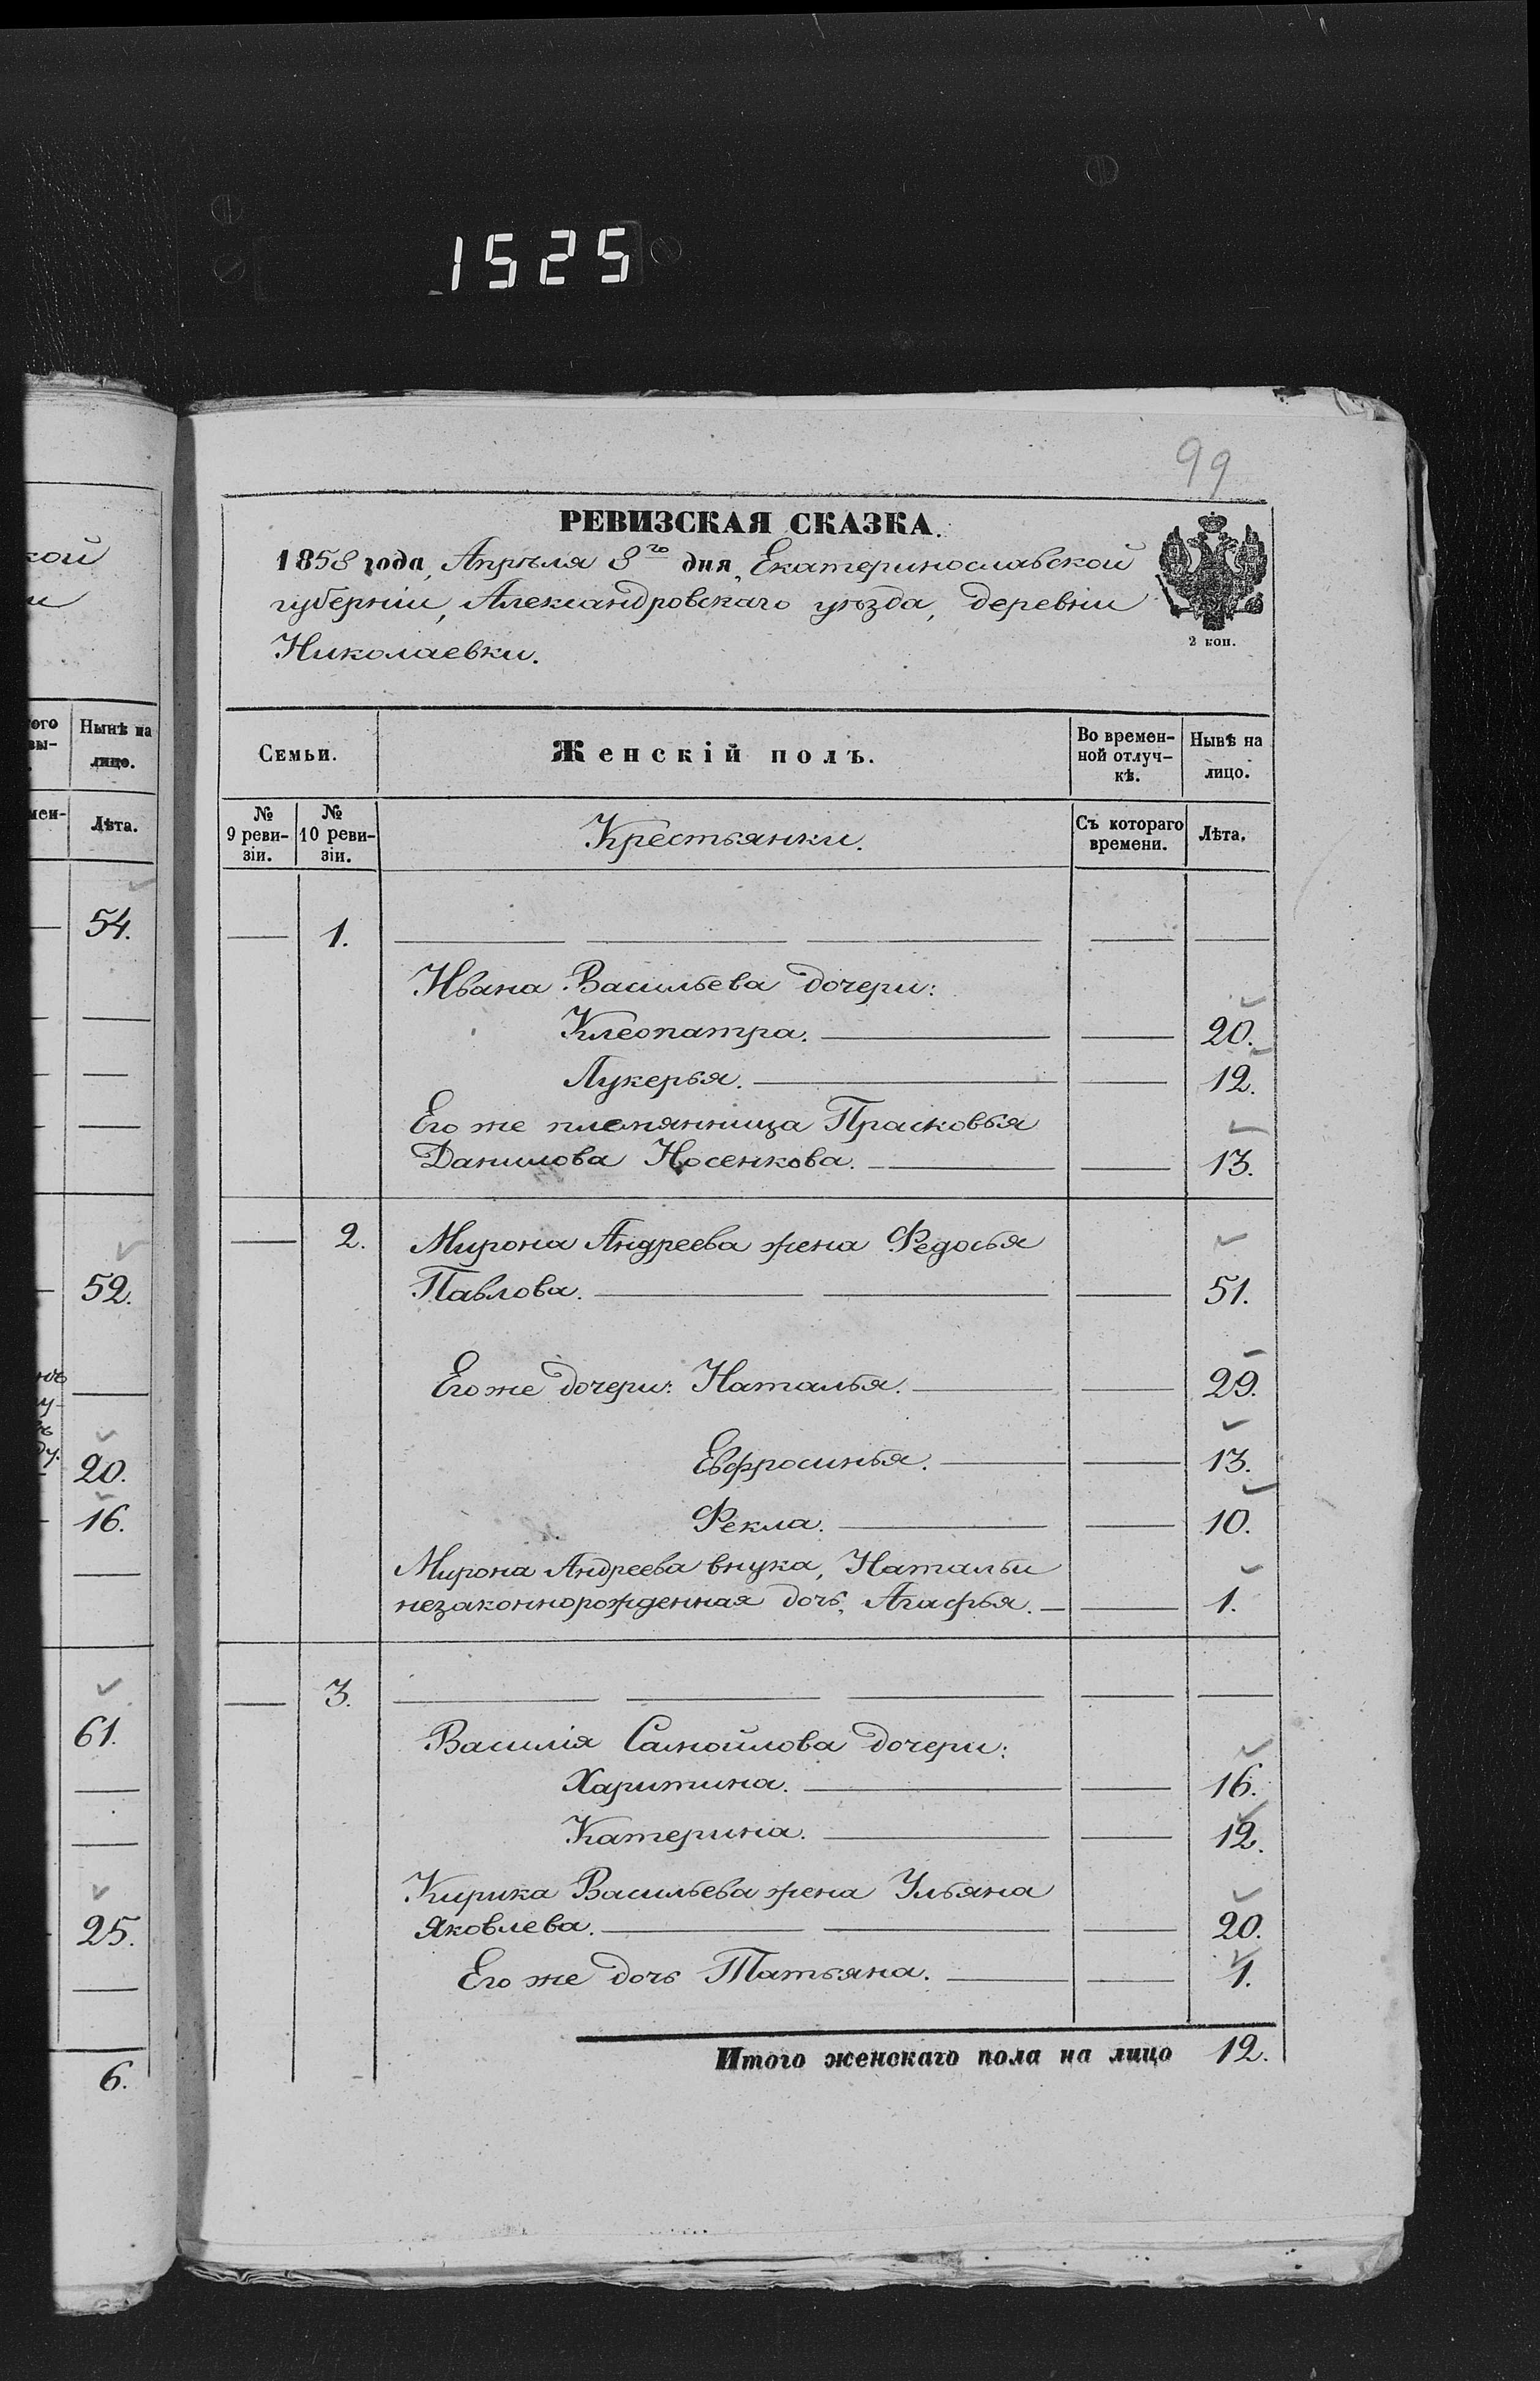 1525
99
РЕВИЗСКАЯ СКАЗКА.
1858 года, Апрѣля 8го дня, Екатеринославской
губерніи, Александровскаго уѣзда, деревни
Николаевки.
2 коп.
Семьи.
Женскій полъ.
Во времен-
ной отлуч-
кѣ.
Нынѣ на
лицо.
№
9 реви-
зіи.
№
10 реви-
зіи.
Крестьянки.
Съ котораго
времени.
Лѣта.
1.
Ивана Васильева дочери:
Клеопатра. 20.
Лукерья. 12.
Его же племянница Прасковья
Данилова Носенкова. 13.
2. Мирона Андреева жена Федосья
Павлова. 51.
Его же дочери: Наталья. 29.
Евфросинья. 13.
Фекла. 10.
Мирона Андреева внука, Натальи
незаконнорожденная дочь, Агафья. 1.
3.
Василія Самойлова дочери:
Харитина. 16.
Катерина. 12.
Кирика Васильева жена Ульяна
Яковлева. 20.
Его же дочь Татьяна. 1.
Итого женскаго пола на лицо 12.
кой
Нынѣ на
лицо.
Лѣта.
54.
52.
20.
16.
61.
25.
6.